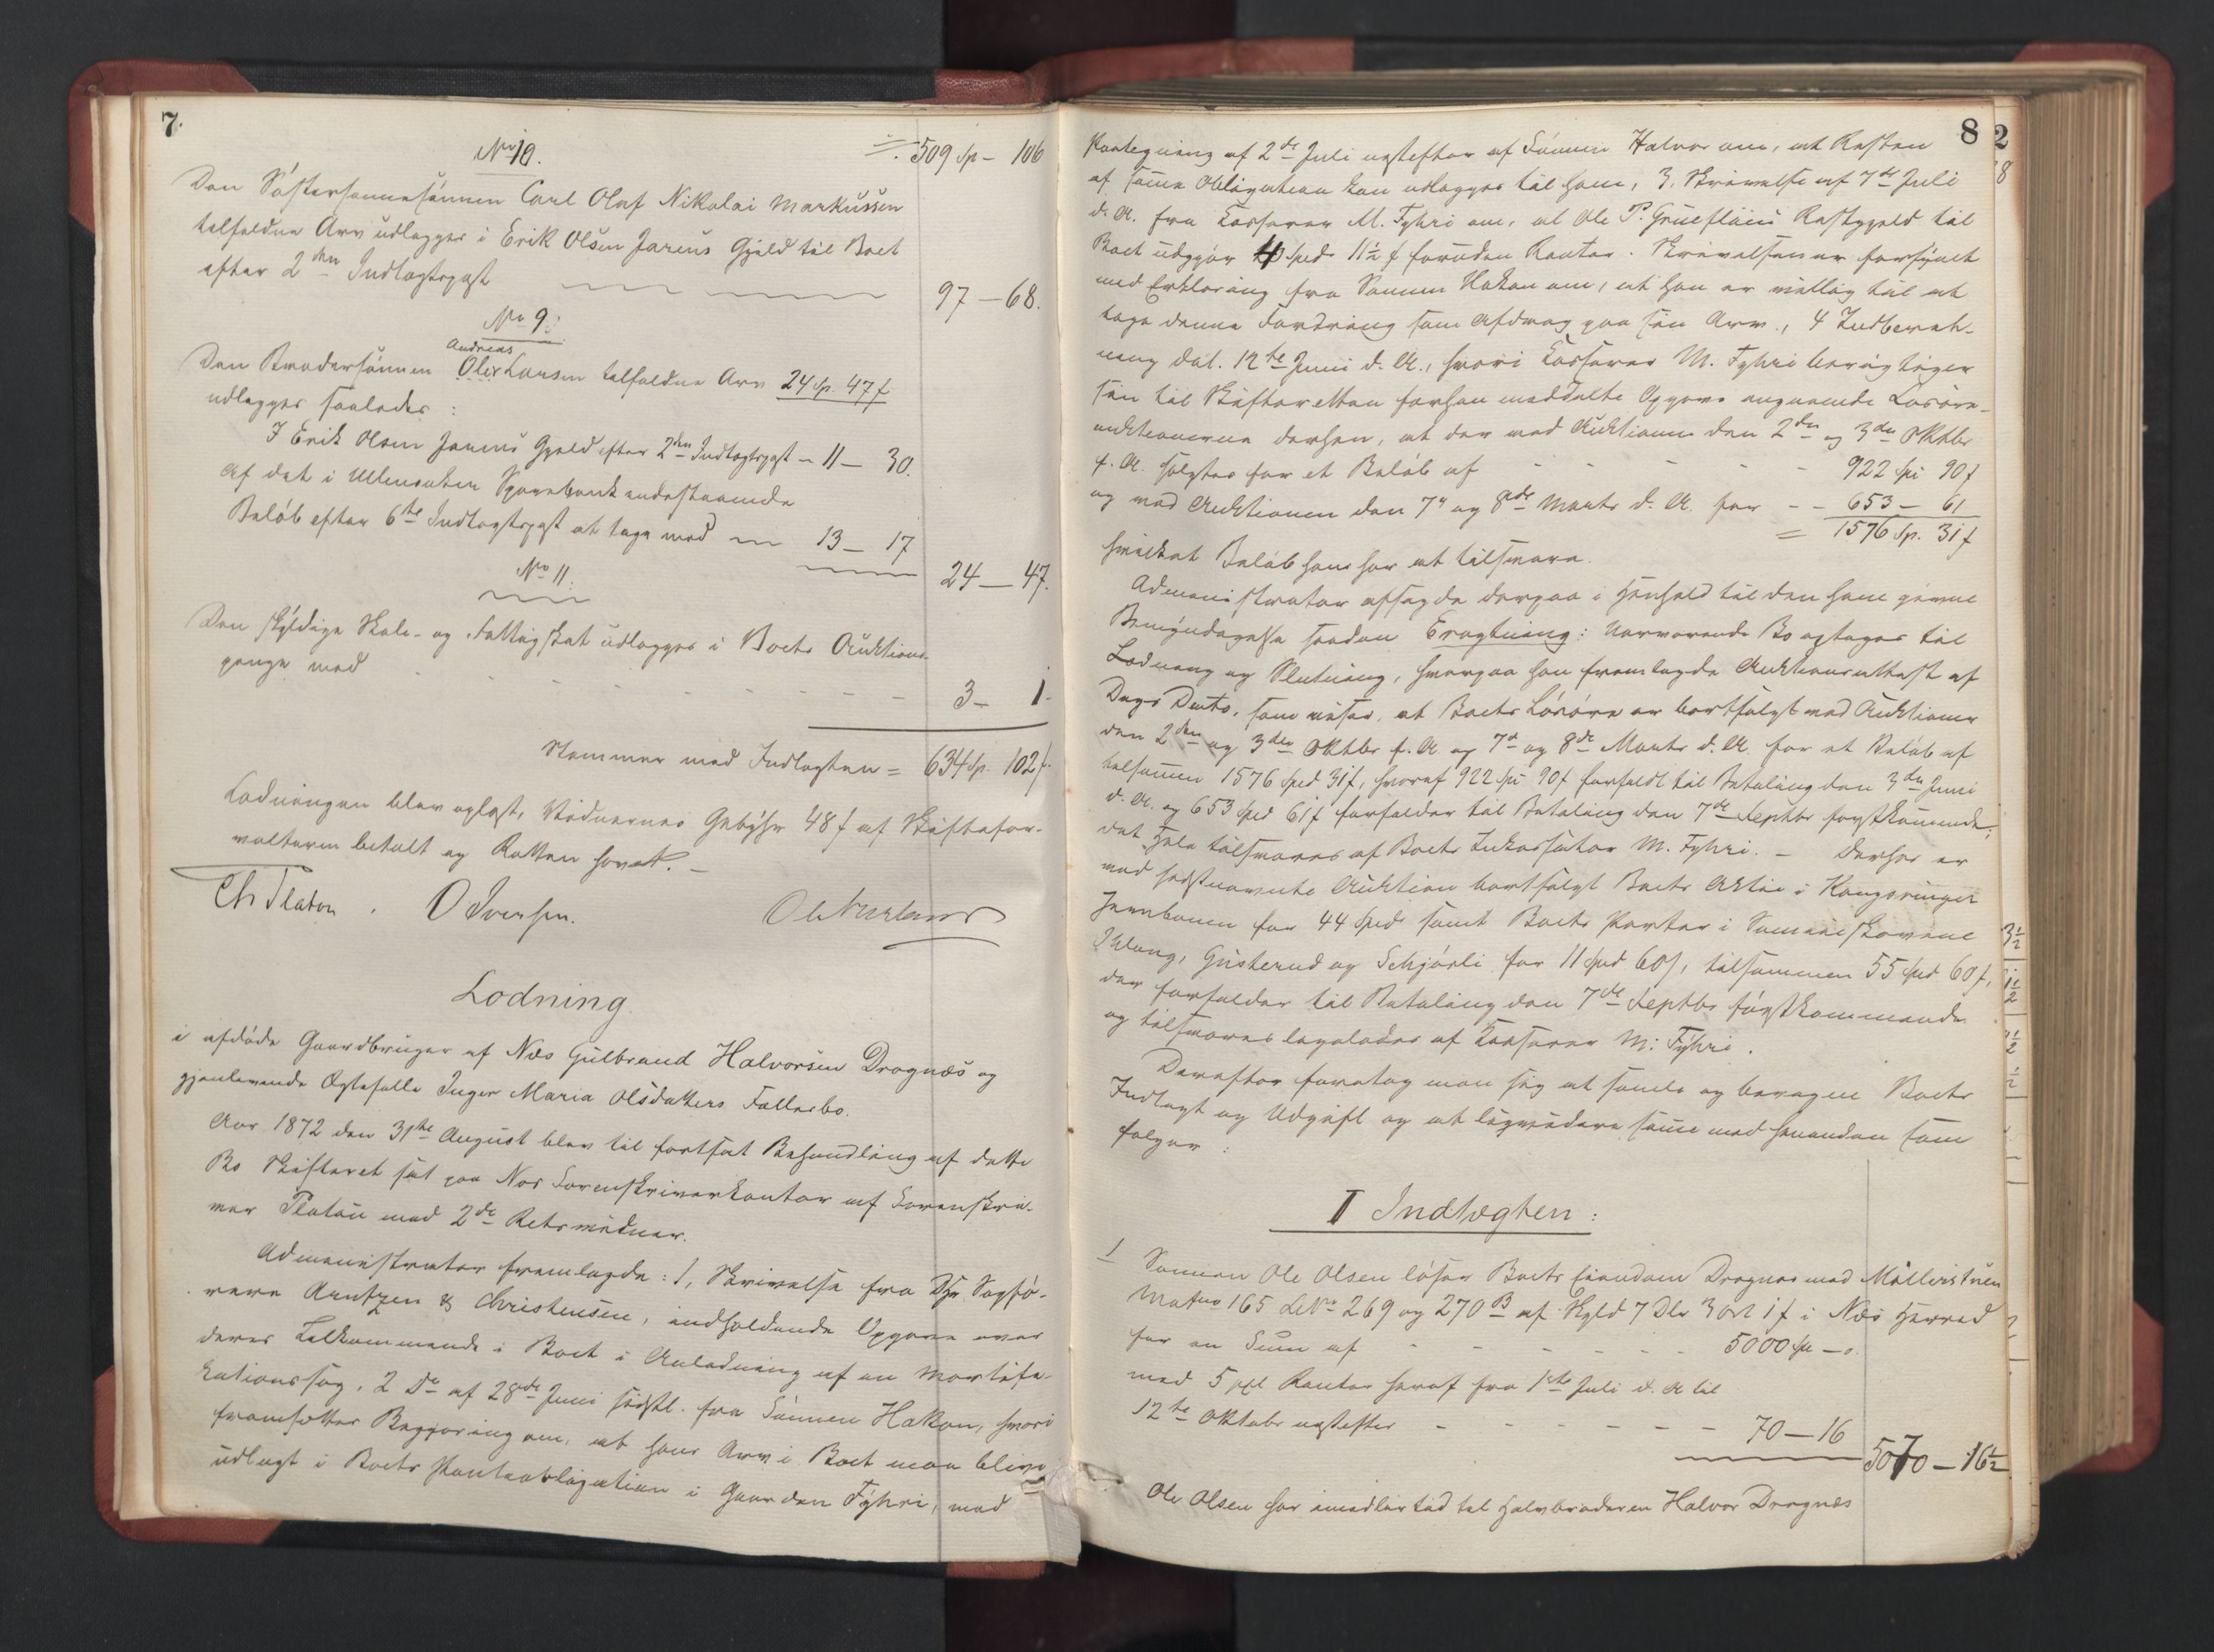 7.
= 509 Sp – 106
No 10.
Den Søstersønnesønnen Carl Olaf Nikolai Markussen
tilfaldne Arv udlægges i Erik Olsen Jarens Gjæld til Boet
efter 2den Indtægtspost 97 – 68.
No 9.
Andreas
Den Brodersønnen Ole Larsen tilfaldne Arv 24 Sp. 47 f
udlægges saaledes:
I Erik Olsen Jarens Gjæld efter 2den Indtægtspost – 11 – 30.
Af det i Ullensaker Sparebank indestaaende
Beløb efter 6te Indtægtspost at tage med 13 – 17
24 – 47.
No 11.
Den skyldige Skole- og Fattigskat udlægges i Boets Auktions-
penge med 3 – 1.
Stemmer med Indtægten = 634 Sp. 102 f.
Lodningen blev oplæst, Vidnernes Gebyhr 48 f af Skiftefor-
valteren betalt og Retten hævet. –
Ch Platou. O Iversen.
Lodning
i afdøde Gaardbruger af Næs Gulbrand Halvorsen Dragnæs og
gjenlevende Ægtefælle Inger Maria Olsdatters Fællesbo.
Aar 1872 den 31te August blev til fortsat Behandling af dette
Bo Skifteret sat paa Næs Sorenskriverkontor af Sorenskri-
ver Platou med 2de Retsvidner.
Administrator fremlagde: 1, Skrivelse fra Dhr Sagfø-
rere Arntzen & Christensen, indholdende Opgave over
deres Tilkommende i Boet i Anledning af en Mortifi-
kationssag, 2 Do af 28de Juni sidstl. fra Sønnen Hakon, hvori
fremsættes Begjæring om, at hans Arv i Boet maa blive
udlagt i Boets Panteobligation i Gaarden Fyhri, med
8
Paategning af 2de Juli næstefter af Sønnen Halvor om, at Resten
af samme Obligation kan udlægges til ham, 3, Skrivelse af 7de Juli
d. A. fra Kasserer M. Fyhri om, at Ole P. Gruefløens Restgjæld til
Boet udgjør 4 Spd 11½ f foruden Renter. Skrivelsen er forsynet
med Erklæring fra Sønnen Hakon om, at han er villig til at
tage denne Fordring som Afdrag paa sin Arv, 4 Indberet-
ning dat. 12te Juni d. A., hvori Kasserer M. Fyhri berigtiger
sin til Skifteretten forhen meddelte Opgave angaaende Løsøre-
auktionerne derhen, at der ved Auktionen den 2den og 3die Oktbr
f. A. solgtes for et Beløb af - - - - - 922 Sp 90 f
og ved Auktionen den 7de og 8de Marts d. A. for - - 653 – 61
= 1576 Sp. 31 f
hvilket Beløb han har at tilsvare.
Administrator afsagde derpaa i Henhold til den ham givne
Bemyndigelse saadan Eragtning: Nærværende Bo optages til
Lodning og Slutning, hvorpaa han fremlagde Auktionsattest af
Dags Dato, som viser, at Boets Løsøre er bortsolgt ved Auktioner
den 2den og 3die Oktbr f. A og 7de og 8de Marts d. A. for et Beløb af
tilsammen 1576 Spd 31 f, hvoraf 922 Sp 90 f forfaldt til Betaling den 3die Juni
d. A. og 653 Spd 61 f forfalder til Betaling den 7de Septbr førstkommende,
det Hele tilsvares af Boets Inkassator M. Fyhri. – Derhos er
ved sidstnævnte Auktion bortsolgt Boets Aktie i Kongsvinger
Jernbanen for 44 Spd samt Boets Parter i Sameieskovene
Gusterud og Schjørli for 11 Spd 60 f, tilsammen 55 Spd 60 f,
der forfalder til Betaling den 7de Septbr førstkommende
og tilsvares ligeledes af Kasserer M. Fyhri.
Derefter foretog man sig at samle og beregne Boets
Indtægt og Udgift og at liqvidere samme mod hinanden som
følger:
I Indtægten:
1 Sønnen Ole Olsen løser Boets Eiendom Dragnæs med Møllerstuen
Matno 165 LNo 269 og 270 B af Skyld 7 Dlr 3 Ort 1 f i Næs Herred
for en Sum af - - - - - 5000 Sp – 0.
med 5 pCt Renter heraf fra 1ste Juli d. A til
12te Oktobr næstefter - - - - - - 70 – 16
5070 – 16½
Ole Olsen har imidlertid til Halvbroderen Halvor Dragnæs